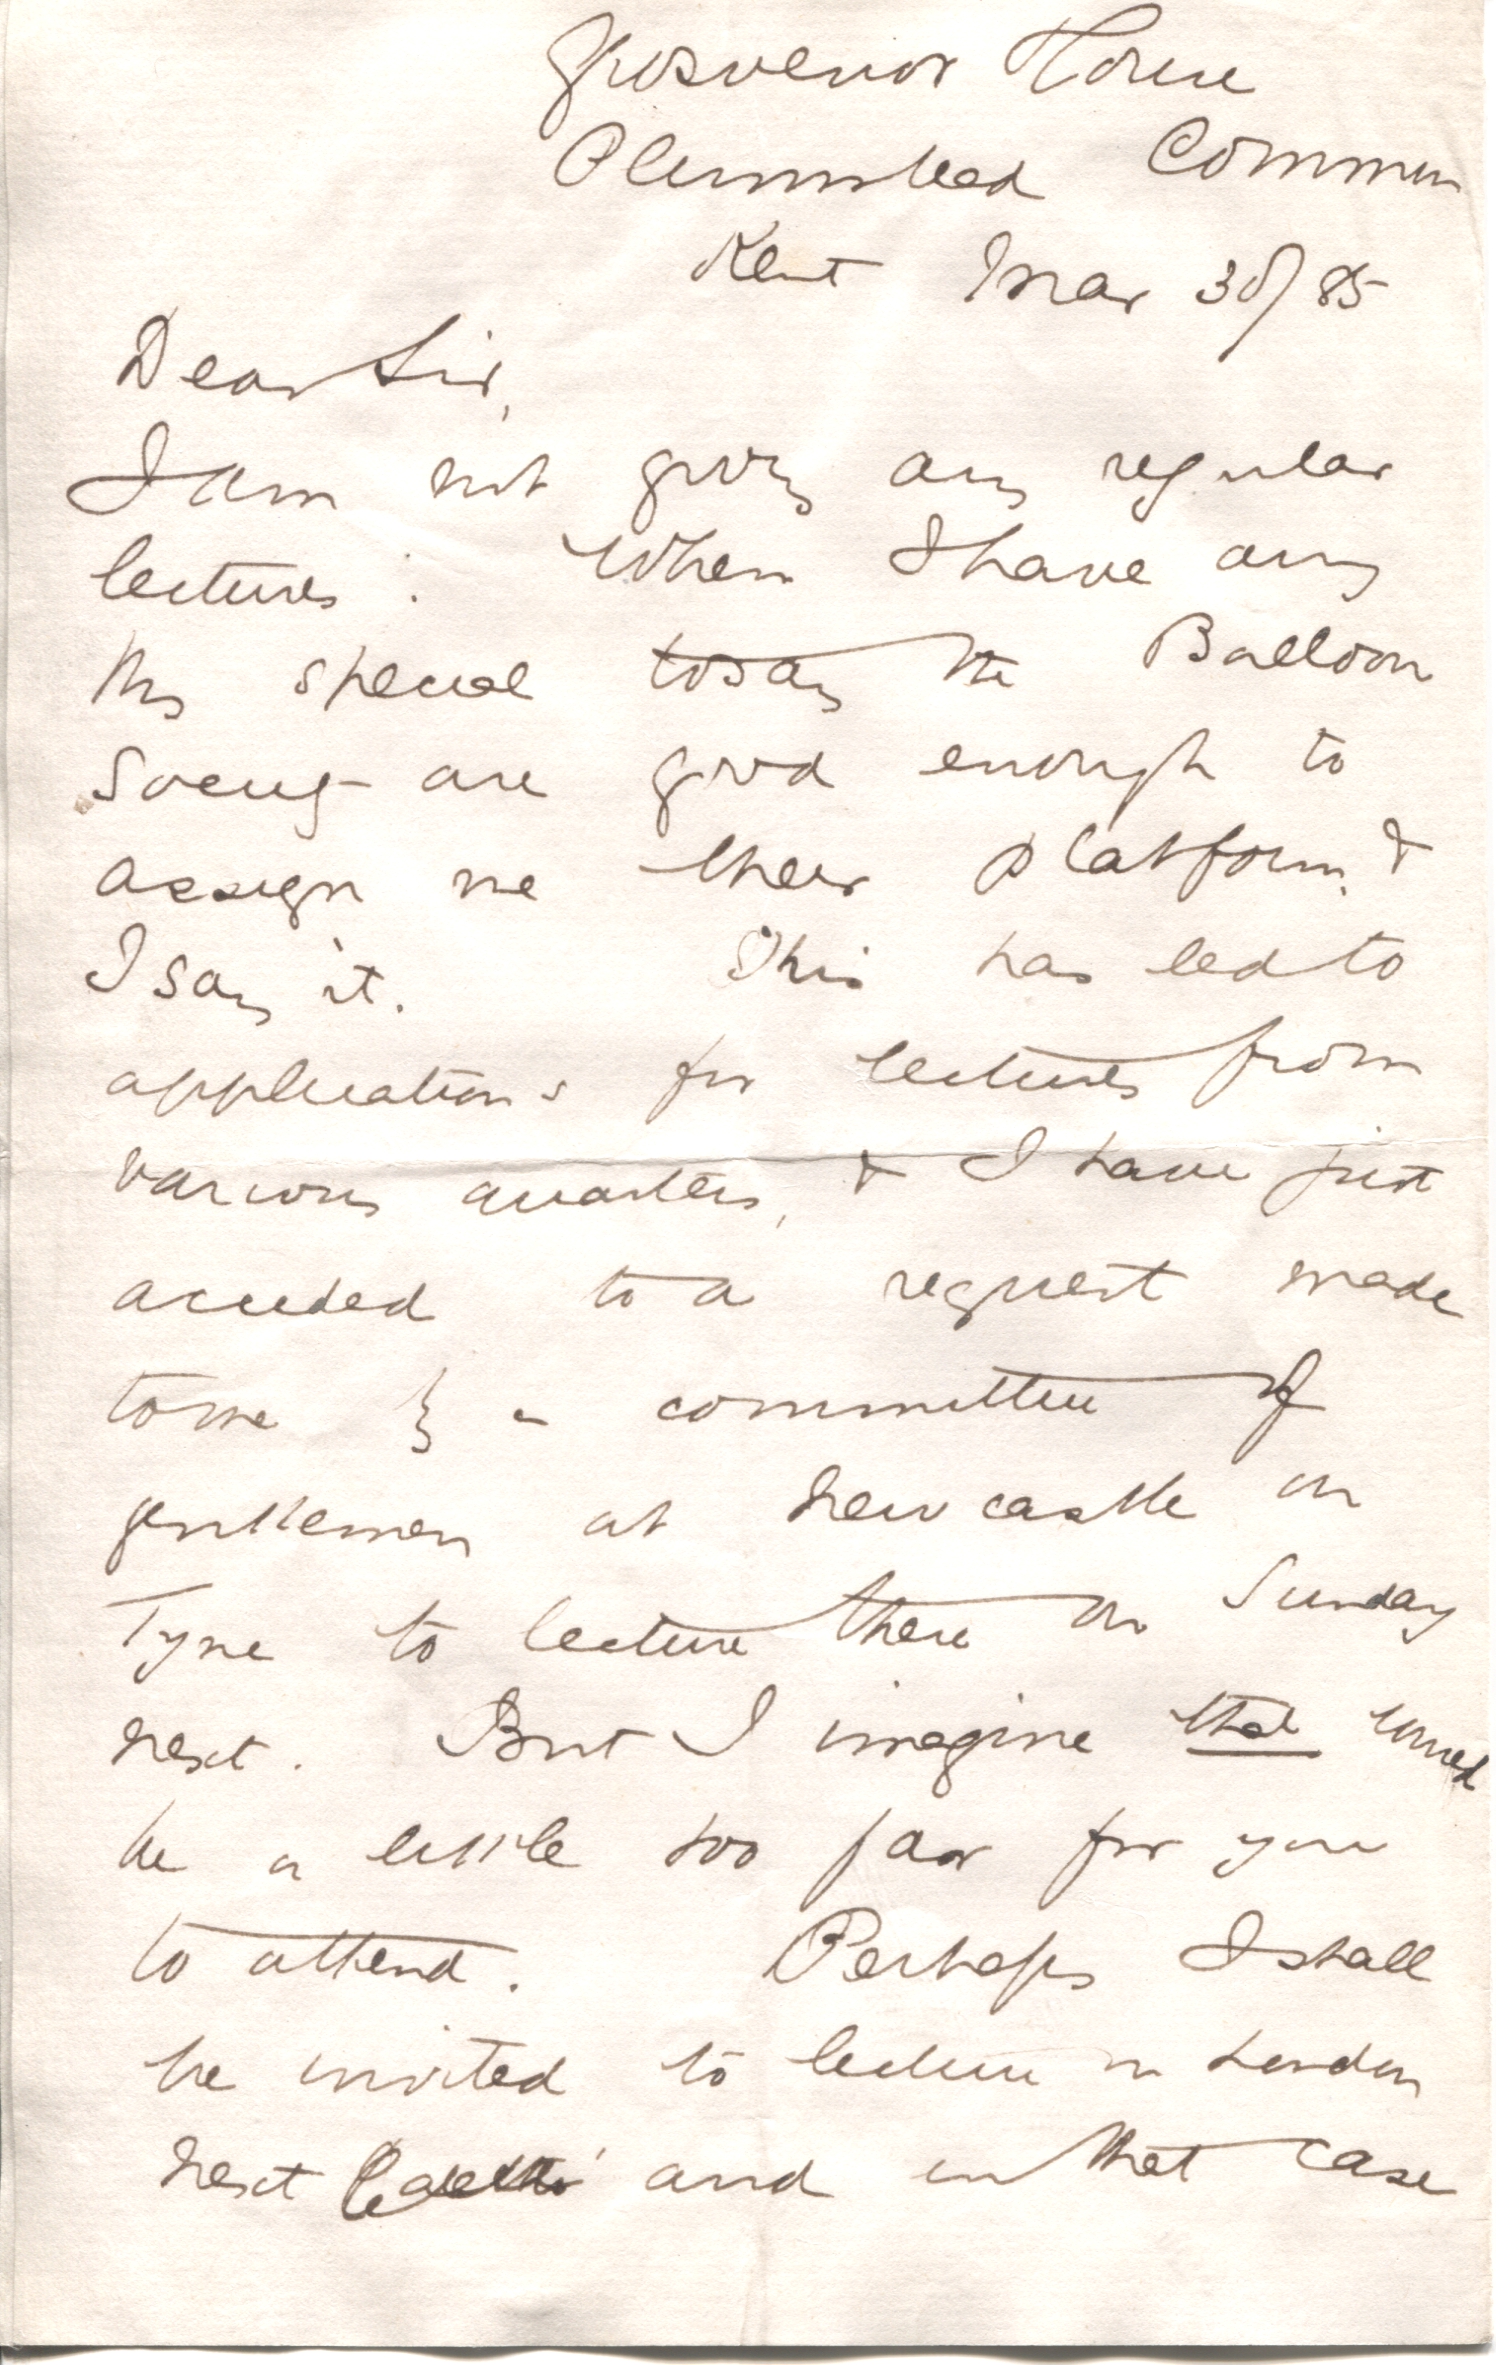 Grosvenor House
Plumstead Common
Kent Mar 30/85
Dear Sir,
I am not giving any regular
lectures. When I have any
thg special to say the Balloon
Society are good enough to
assign me their platform, &
I say it. This has led to
applications for lectures from
various quarters, & I have just
acceded to a request made
to me by a committee of
gentlemen at Newcastle on
Tyne to lecture there on Sunday
next. But I imagine that would
be a little too far for you
to attend. Perhaps I shall
be invited to lecture in London
next and in that case